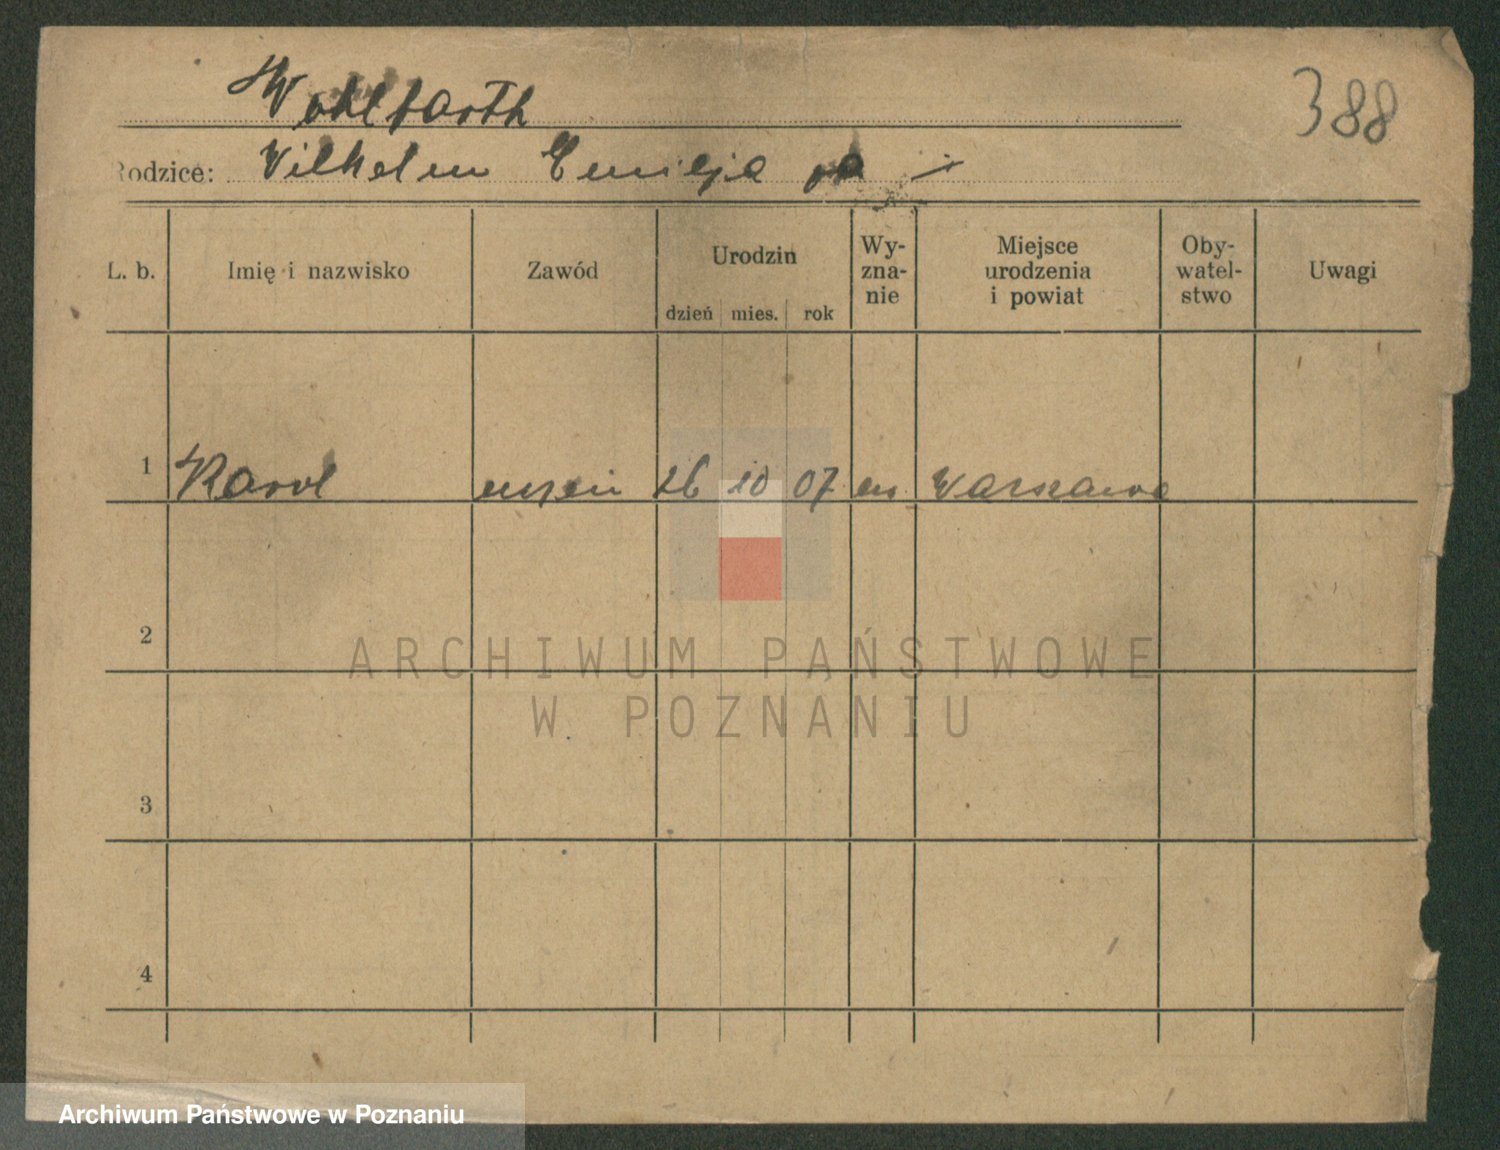 Wohlfarth
388
Rodzice: Vilhelm Emilja
L. b. Imię i nazwisko Zawód Urodzin dzień mies. rok Wy- zna- nie Miejsce urodzenia i powiat Oby- watel- stwo Uwagi
1 Karol uczeń 26 10 07 ew Warszawa
2
ARCHIWUM PAŃSTWOWE
W POZNANIU
3
4
Archiwum Państwowe w Poznaniu